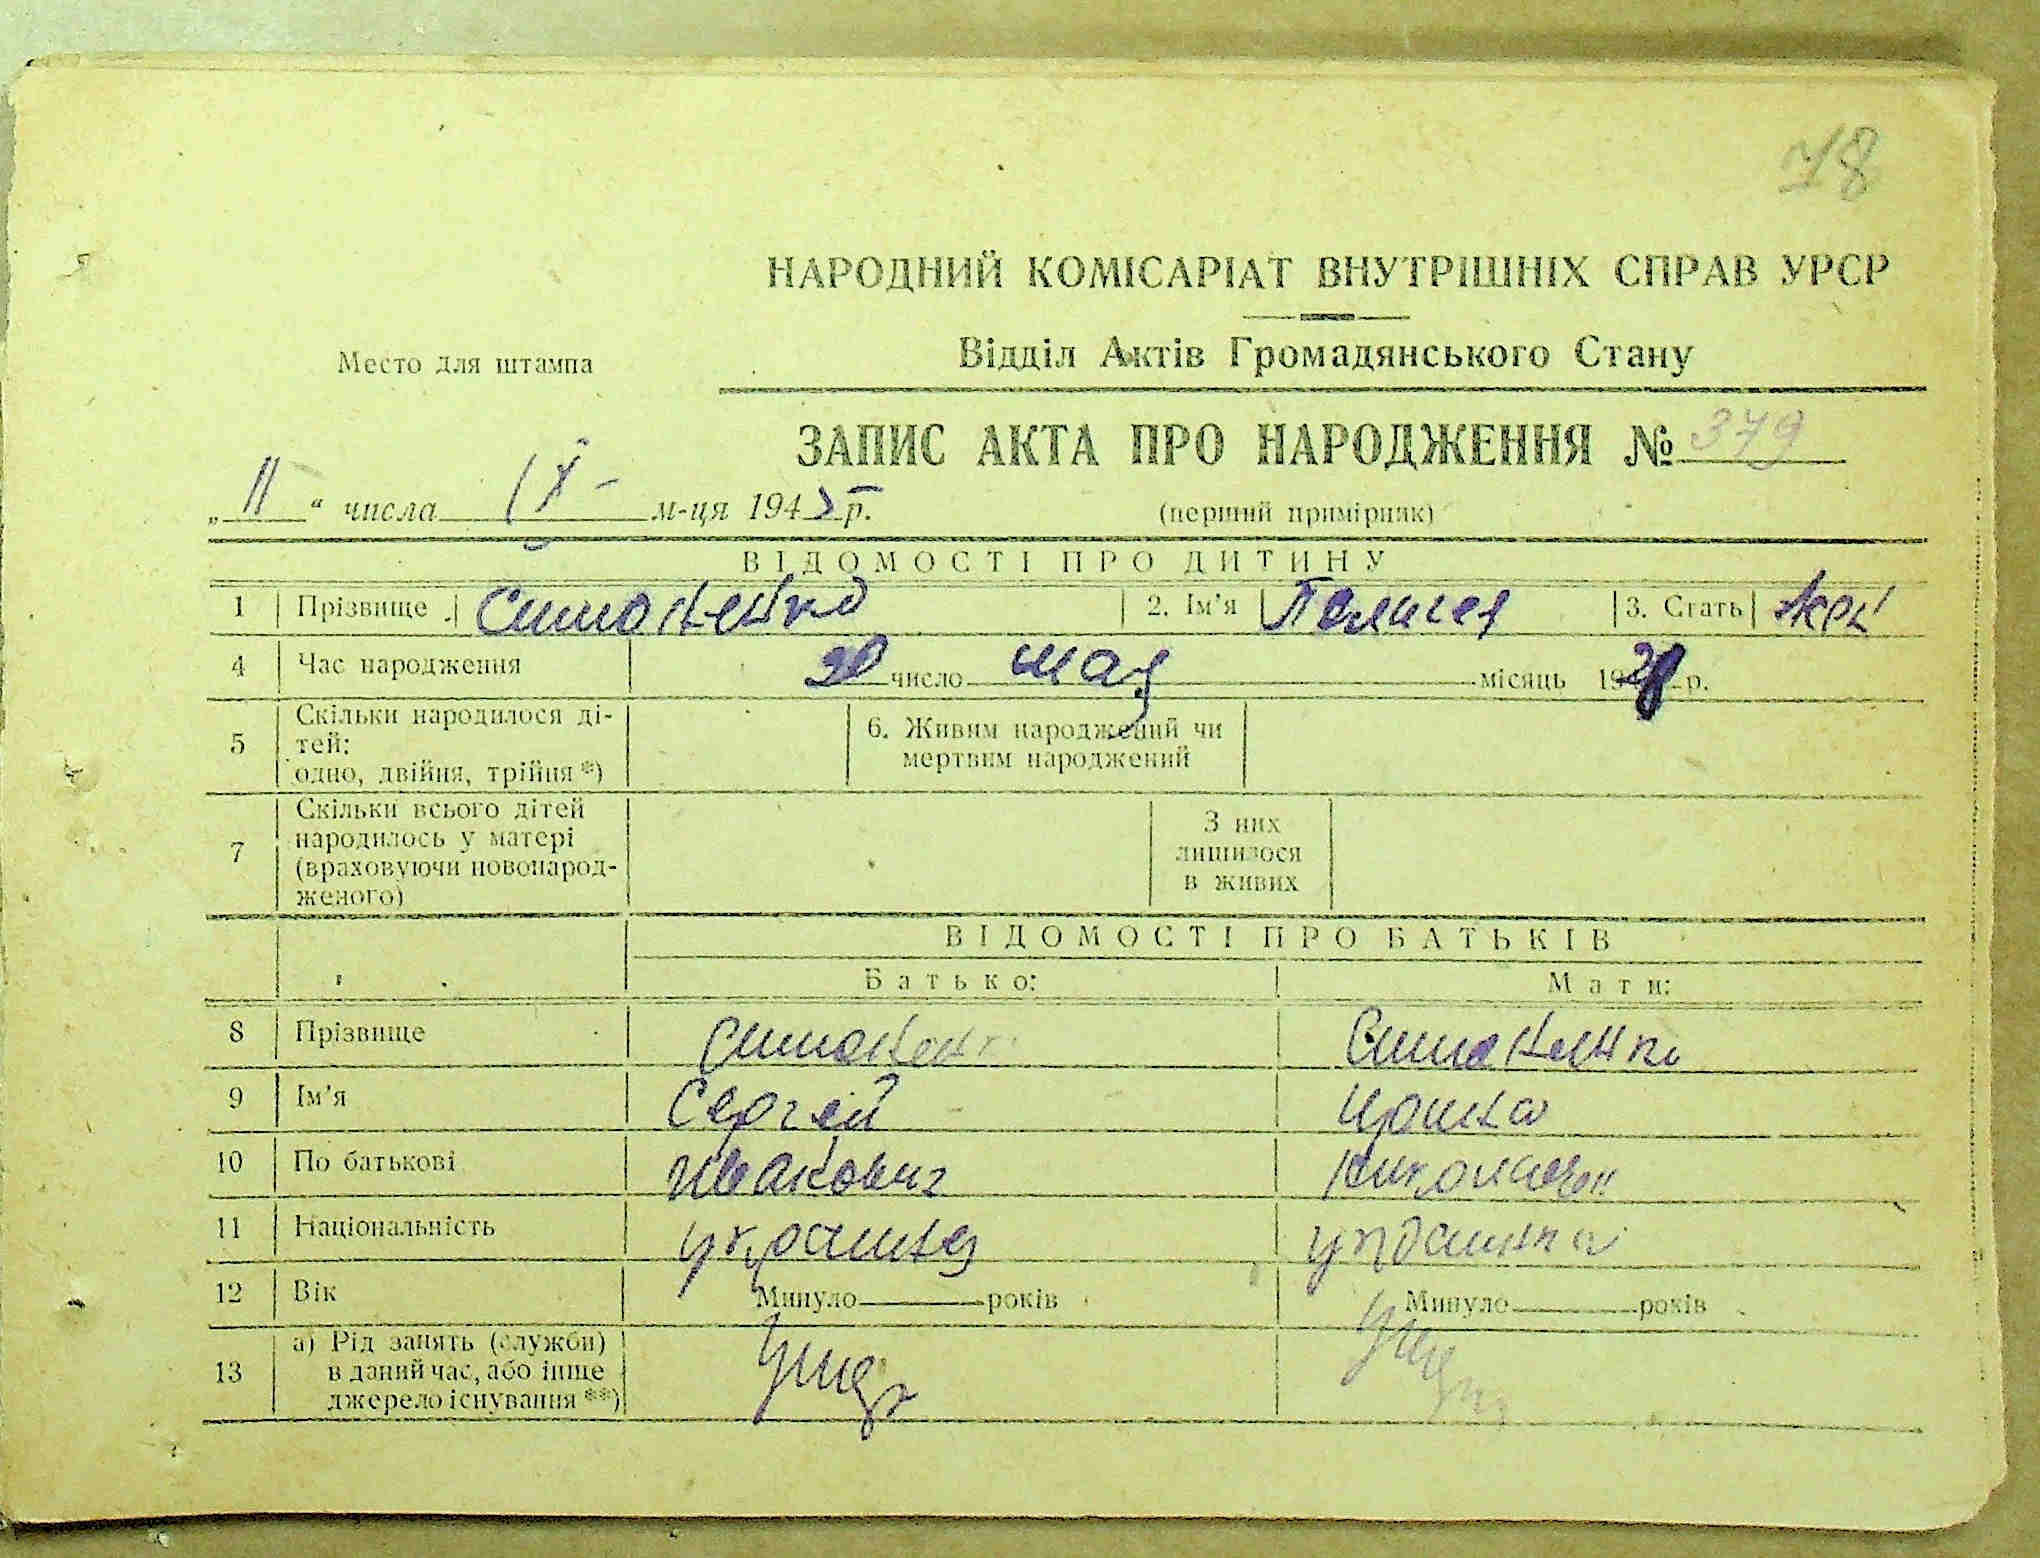 78
НАРОДНИЙ КОМІСАРІАТ ВНУТРІШНІХ СПРАВ УРСР
Место для штампа
Відділ Актів Громадянського Стану
ЗАПИС АКТА ПРО НАРОДЖЕННЯ № 379
„ 11 “ числа IX м-ця 194 р.
(перший примірник)
ВІДОМОСТІ ПРО ДИТИНУ
1 Прізвище Симоненко 2. Ім'я Пелагея 3. Стать жен
4 Час народження 20 число мая місяць 19 р.
5 Скільки народилося ді-
тей:
одно, двійня, трійня *)
6. Живим народжений чи
мертвим народжений
7 Скільки всього дітей
народилось у матері
(враховуючи новонарод-
женого)
З них
лишилося
в живих
ВІДОМОСТІ ПРО БАТЬКІВ
Батько: Мати:
8 Прізвище Симоненк Симоненко
9 Ім'я Сергей
10 По батькові Иванович
11 Національність украинец украинка
12 Вік Минуло років Минуло років
13 а) Рід занять (служби)
в даний час, або інше
джерело існування **)